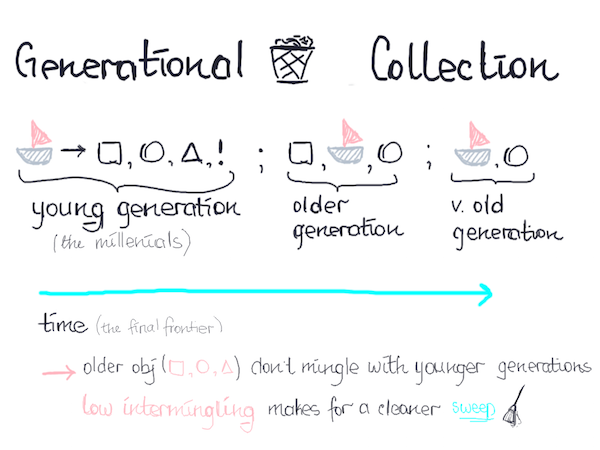 Generational Collection
→ , , , ! ; , , ; ,
young generation
(the millenials)
older
generation
v. old
generation
time (the final frontier)
→ older obj (□, ○, △) don't mingle with younger generations
low intermingling makes for a cleaner sweep